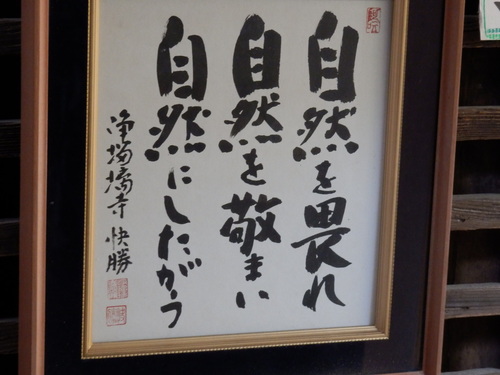 自然を畏れ
自然を敬まい
自然にしたがう
浄場橋寺 快勝